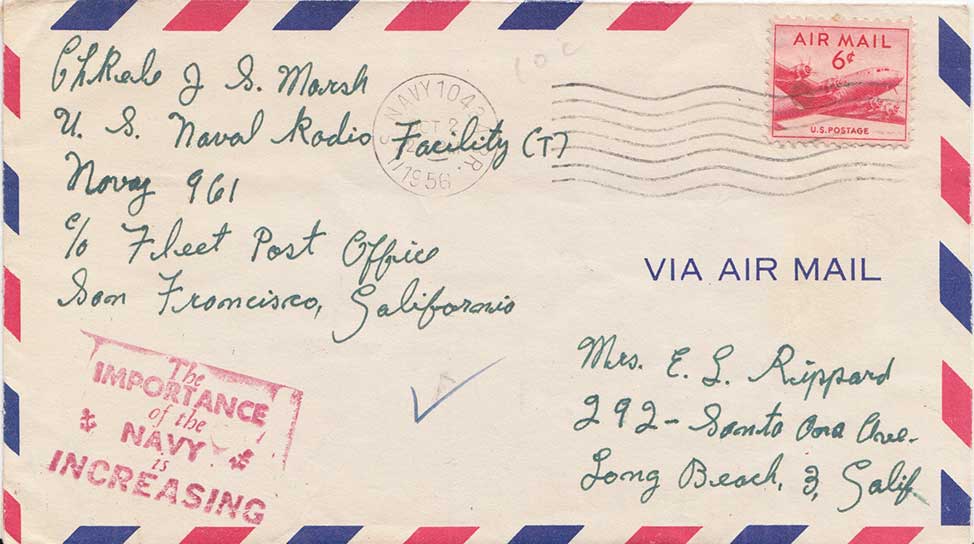 ChRele J S. Marsh
U. S. Naval Radio Facility (T)
Navy 961
c/o Fleet Post Office
San Francisco, California
10c
NAVY 1043
1956
AIR MAIL
6¢
U.S. POSTAGE
VIA AIR MAIL
Mrs. E. L. Rippard
292 - Santa Ana Ave.
Long Beach, 3, Calif.
The
IMPORTANCE
of the
NAVY
is
INCREASING